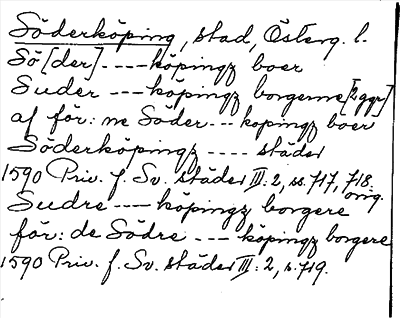 Söderköping, stad, Österg. l.
Sö[der] ---- köpingz boer
Suder --- köpingz borgerne [2 ggr]
af för: ne Söder --- kopingz boer
Söderköpingz ---- städer
1590 Priv. f. Sv. städer III: 2, ss. 717, 718.
orig.
Sudre ---- köpingz borgere
för: de Södre --- köpingz borgere
1590 Priv. f. Sv. städer III: 2, s. 719.